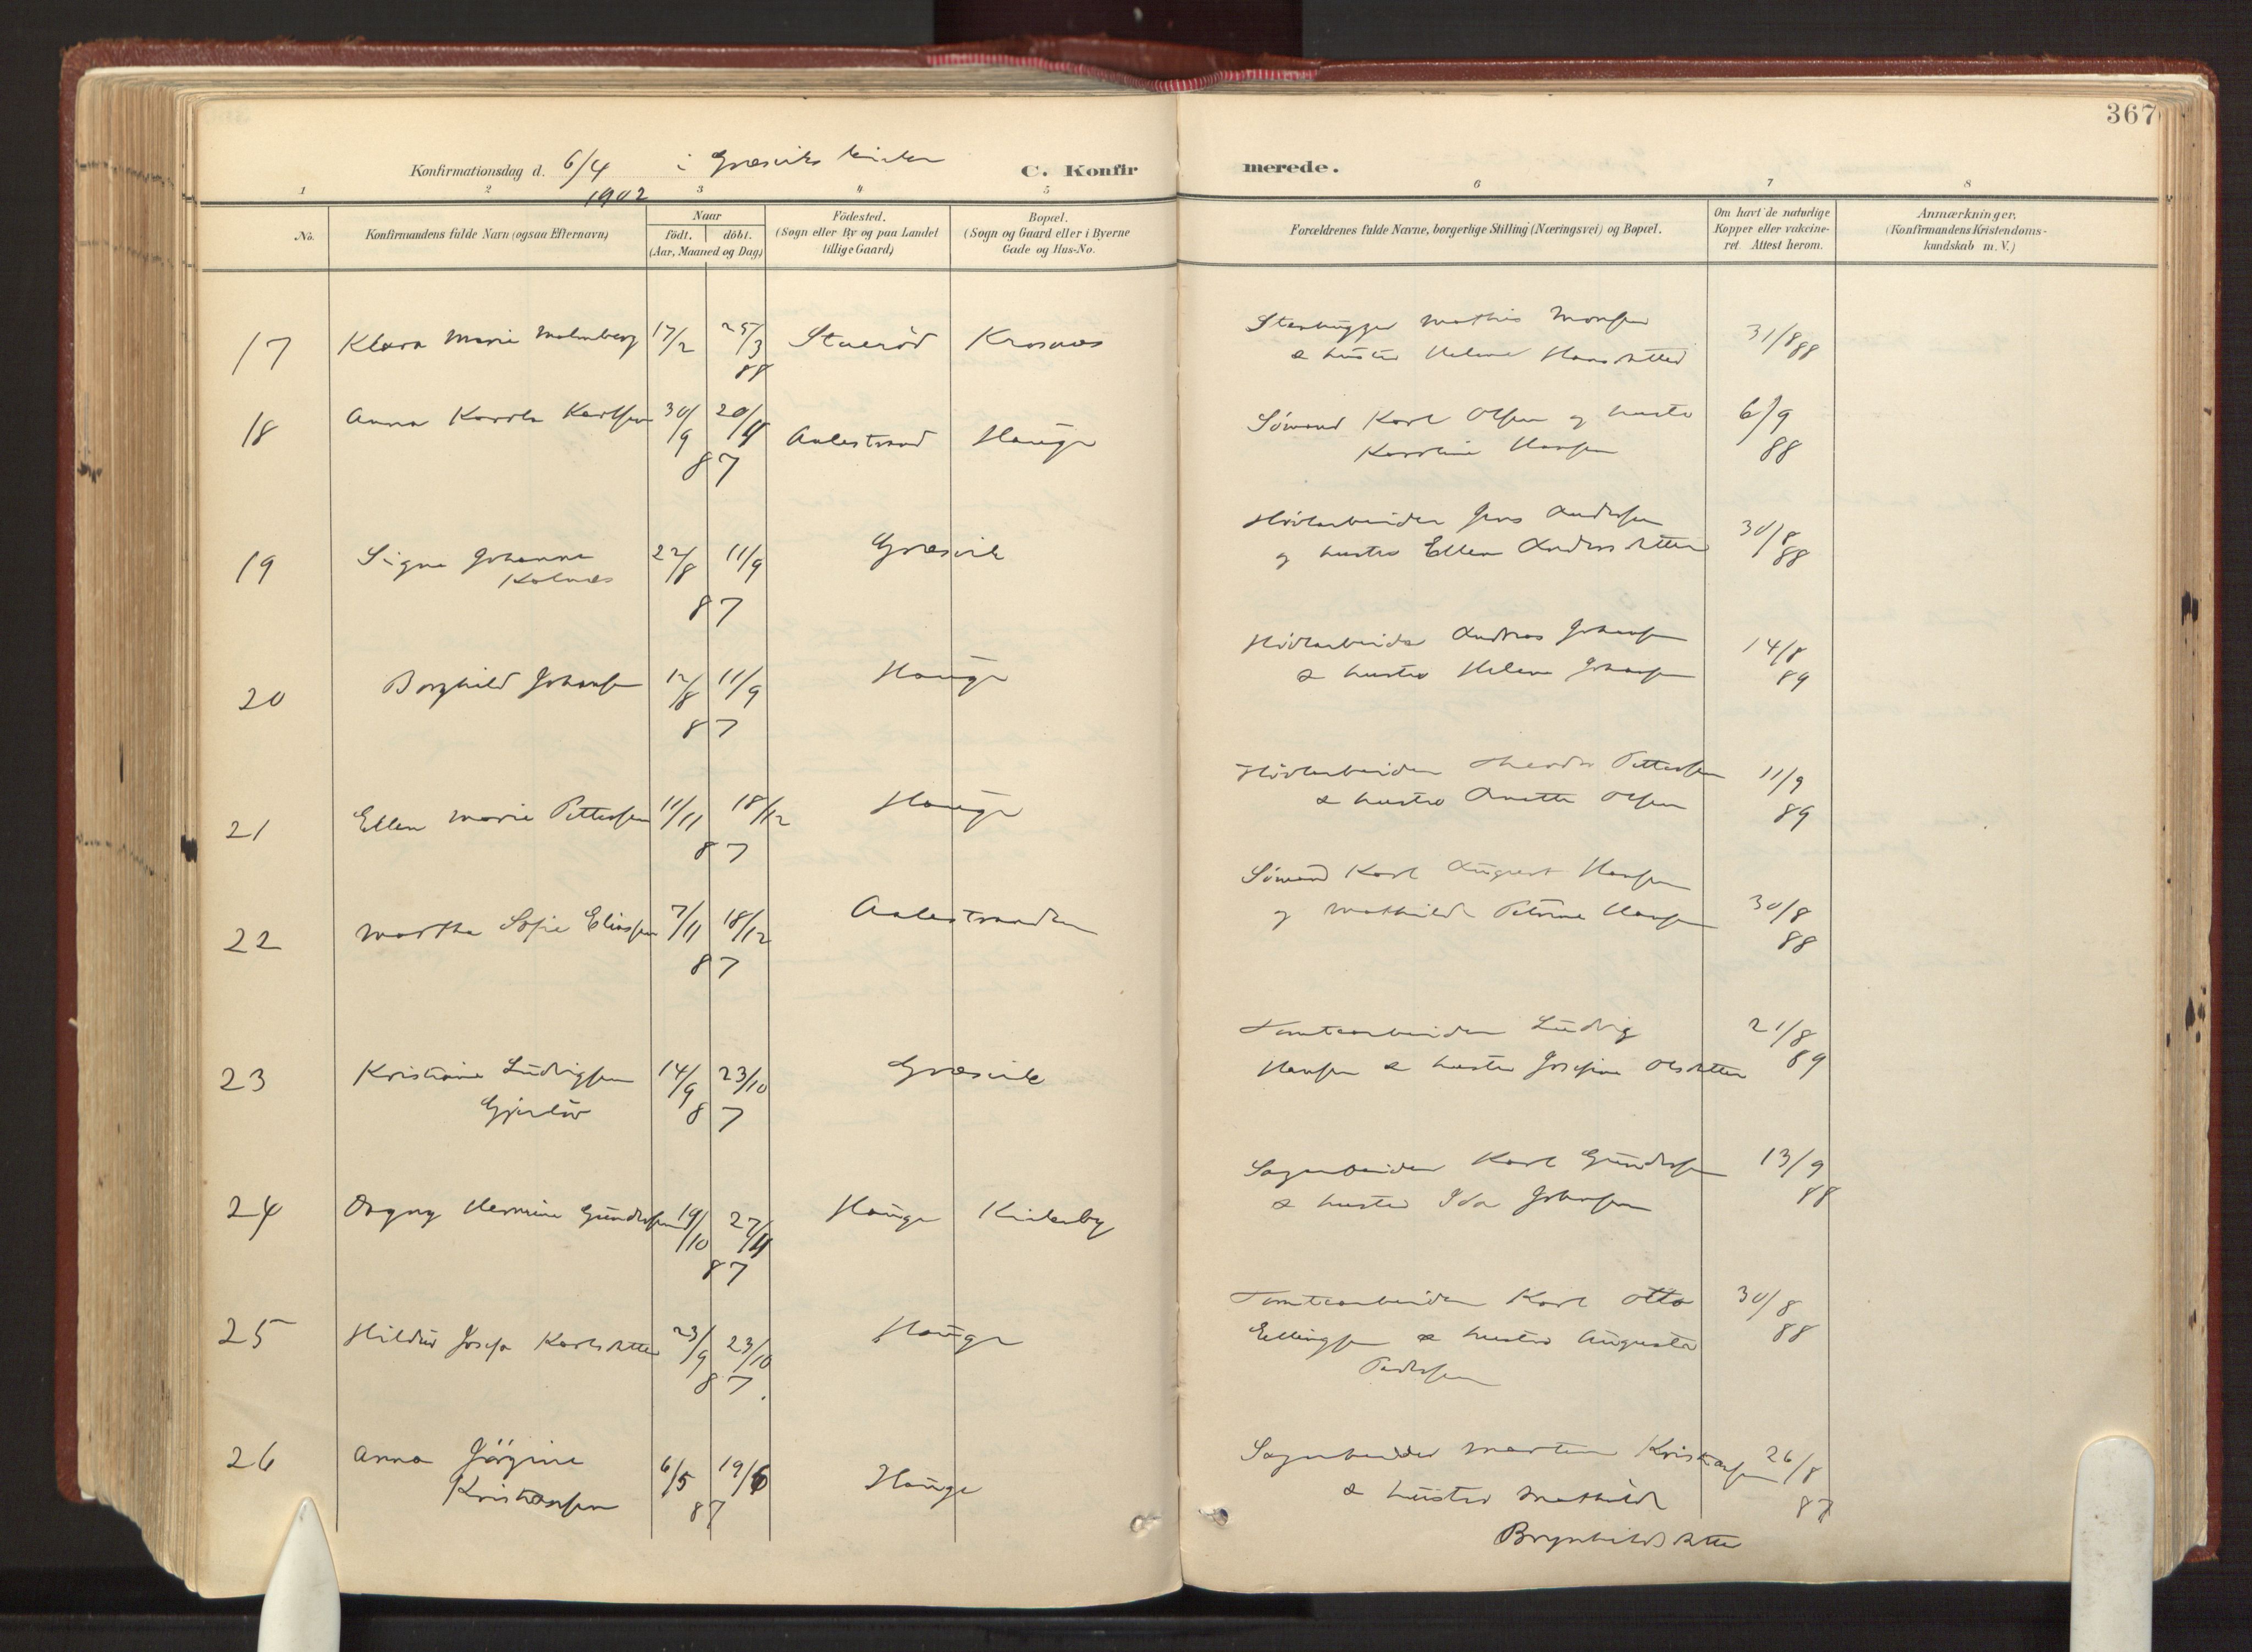 367
Konfirmationsdag d. 6/4 i Græsviks kirke
1902
C. Konfirmerede.
1 2 3 4 5 6 7 8
No.
Konfirmandens fulde Navn (ogsaa Efternavn)
Naar
födt. döbt.
(Aar, Maaned og Dag)
Födested.
(Sogn eller By og paa Landet
tillige Gaard)
Bopæl.
(Sogn og Gaard eller i Byerne
Gade og Hus-No.
Forældrenes fulde Navne, borgerlige Stilling (Næringsvei) og Bopæl.
Om havt de naturlige
Kopper eller vakcine-
ret. Attest herom.
Anmærkninger.
(Konfirmandens Kristendoms-
kundskab m. V.)
17 Klara Marie Malmberg 17/2 25/3 88 Krosnes
Stenhugger Mathis Monsen 31/8 88
& hustru Helene Hansdatter
18 Anna Karola Karlsen 30/9 20/11 87 Aalestrand Hauge
Sömand Karl Olsen og hustru 6/9 88
Karoline Hansen
19 Signe Johanne 22/8 11/9 87 Græsvik
Kolnes
Hövlarbeider Jens Andersen 30/8 88
og hustru Ellen Andersdatter
20 Borghild Johansen 12/8 11/9 87 Hauge
Hövlarbeider Andreas Johansen 14/8 89
& hustru Helene Johansen
21 Ellen Marie Pettersen 11/11 18/12 87 Hauge
Hövlarbeider Theodor Pettersen 11/9 89
& hustru Anette Olsen
22 Martha Sofie Eliassen 7/11 18/12 87 Aalestranden
Sömand Karl August Hansen 30/8 88
og Mathilde Petrine Hansen
23 Kristiane Ludvigsen 14/9 23/10 87 Græsvik
Gjerlöv
Tomtearbeider Ludvig 21/8 89
Hansen & hustru Josefine Olsdatter
24 Dagny Hermine Gundersen 19/10 27/11 87 Hauge Kirkeby
Sagarbeider Karl Gundersen 13/9 88
& hustru Ida Johansen
25 Hildur Josefa Karlsdatter 23/9 23/10 87 Hauge
Tomtearbeider Karl Otto 30/8 88
Ellingsen & hustru Augusta
Pedersen
26 Anna Jörgine 6/5 19/6 87 Hauge
Kristiansen
Sagarbeider Martin Kristiansen 26/8 87
& hustru Mathilde
Brynhildsdatter